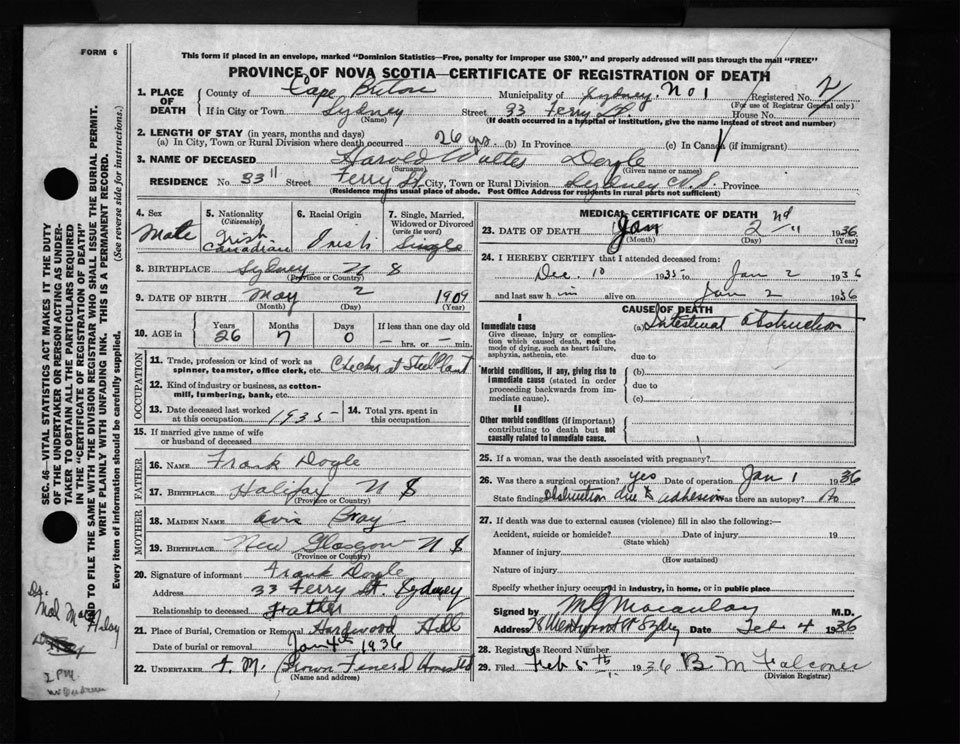 FORM 6
This form if placed in an envelope, marked "Dominion Statistics—Free, penalty for improper use $300," and properly addressed will pass through the mail "FREE"
PROVINCE OF NOVA SCOTIA—CERTIFICATE OF REGISTRATION OF DEATH
1. PLACE OF DEATH County of Cape Breton Municipality of Sydney. No 1 Registered No. 2
(For use of Registrar General only)
If in City or Town Sydney Street 33 Ferry St. House No.
(Name) (If death occurred in a hospital or institution, give the name instead of street and number)
2. LENGTH OF STAY (in years, months and days)
(a) In City, Town or Rural Division where death occurred 26 yrs. (b) In Province (c) In Canada (if immigrant)
3. NAME OF DECEASED Harold Walter Doyle
(Surname) (Given name or names)
RESIDENCE No. 33 " Street Ferry St City, Town or Rural Division Sydney N.S. Province
(Residence means usual place of abode. Post Office Address for residents in rural parts not sufficient)
4. Sex Male
5. Nationality (Citizenship) Irish Canadian
6. Racial Origin Irish
7. Single, Married, Widowed or Divorced (write the word) Single
8. BIRTHPLACE Sydney N S
(Province or Country)
9. DATE OF BIRTH May 2 1909
(Month) (Day) (Year)
10. AGE in Years 26 Months 7 Days 0 If less than one day old — hrs. or — min.
OCCUPATION
11. Trade, profession or kind of work as spinner, teamster, office clerk, etc. Checker at Steel Plant
12. Kind of industry or business, as cotton-mill, lumbering, bank, etc.
13. Date deceased last worked at this occupation 1935 14. Total yrs. spent in this occupation
15. If married give name of wife or husband of deceased
FATHER
16. NAME Frank Doyle
17. BIRTHPLACE Halifax N S
MOTHER
18. MAIDEN NAME Avis Gray
19. BIRTHPLACE New Glasgow N S
(Province or Country)
20. Signature of informant Frank Doyle
Address 33 Ferry St. Sydney
Relationship to deceased Father
21. Place of Burial, Cremation or Removal Hardwood Hill
Date of burial or removal Jan 4th 1936
22. UNDERTAKER Brown Funeral
(Name and address)
MEDICAL CERTIFICATE OF DEATH
23. DATE OF DEATH Jan 2nd " 1936
(Month) (Day) (Year)
24. I HEREBY CERTIFY that I attended deceased from:
Dec. 10 1935 to Jan 2 1936
and last saw h im alive on Jan 2 1936
CAUSE OF DEATH
I
Immediate cause (a) Intestinal Obstruction
Give disease, injury or complication which caused death, not the mode of dying, such as heart failure, asphyxia, asthenia, etc.
due to
Morbid conditions, if any, giving rise to immediate cause (stated in order proceeding backwards from immediate cause)
(b)
due to
(c)
II
Other morbid conditions (if important) contributing to death but not causally related to immediate cause.
25. If a woman, was the death associated with pregnancy?
26. Was there a surgical operation? yes Date of operation Jan 1 1936
State findings Obstruction due to adhesions Was there an autopsy? No
27. If death was due to external causes (violence) fill in also the following:—
Accident, suicide or homicide? Date of injury 19
(State which)
Manner of injury
(How sustained)
Nature of injury
Specify whether injury occurred in industry, in home, or in public place
Signed by M G Macaulay M.D.
Address Sydney Date Feb 4 1936
28. Registrar's Record Number
29. Filed Feb 5th 1936 B. M Falconer
(Division Registrar)
SEC. 46—VITAL STATISTICS ACT MAKES IT THE DUTY
OF THE UNDERTAKER OR PERSON ACTING AS UNDER-
TAKER TO OBTAIN ALL THE PARTICULARS REQUIRED
IN THE "CERTIFICATE OF REGISTRATION OF DEATH"
AND TO FILE THE SAME WITH THE DIVISION REGISTRAR WHO SHALL ISSUE THE BURIAL PERMIT.
WRITE PLAINLY WITH UNFADING INK. THIS IS A PERMANENT RECORD.
Every item of information should be carefully supplied. (See reverse side for instructions.)
2 PM